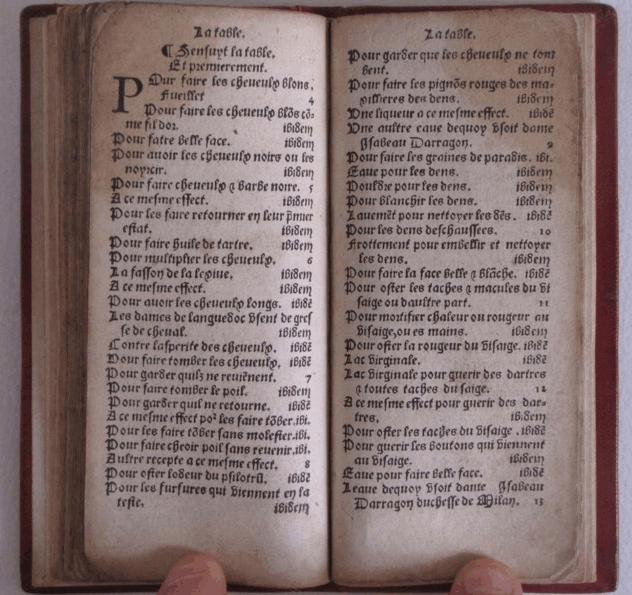 La table.
¶ Sensuyt la table.
Et premierement.
POur faire les cheueulx blons.
Fueillet 4
Pour faire les cheueulx blõs cõ⸗
me fil dor. ibidem
Pour faire belle face. ibidem
Pour auoir les cheueulx noirs ou les
noyrcir. ibidem
Pour faire cheueulx ⁊ barbe noire. 5
A ce mesme effect. ibidem
Pour les faire retourner en leur p̃mier
estat. ibidem
Pour faire huile de tartre. ibidem
Pour multiplier les cheueulx. 6
La fasson de la lexiue. ibidem
A ce mesme effect. ibidem
Pour auoir les cheueulx longs. ibidẽ
Les dames de languedoc vsent de gres
se de cheual. ibidem
Contre lasperite des cheueulx. ibidẽ
Pour faire tomber les cheueulx. ibidẽ
Pour garder quilz ne reuiẽnent. 7
Pour faire tomber le poil. ibidem
Pour garder quil ne retourne. ibidẽ
A ce mesme effect po² les faire tõber. ibi.
Pour les faire tõber sans molester. ibi.
Pour faire cheoir poil sans reuenir. ibi.
Aultre recepte a ce mesme effect. 8
Pour oster lodeur du psilotrũ. ibidẽ
Pour les furfures qui viennent en la
teste. ibidem
La table.
Pour garder que les cheueulx ne tom
bent. ibidem
Pour faire les pignõs rouges des ma⸗
xilleres des dens. ibidem
Vne liqueur a ce mesme effect. ibidẽ
Vne aultre eaue dequoy vsoit dame
Ysabeau Darragon. 9
Pour faire les graines de paradis. ibi.
Eaue pour les dens. ibidem
Pouldre pour les dens. ibidem
Pour blanchir les dens. ibidem
Lauemẽt pour nettoyer les dẽs. ibidẽ
Pour les dens deschaussees. 10
Frottement pour embellir et nettoyer
les dens. ibidem
Pour faire la face belle ⁊ blãche. ibidẽ
Pour oster les taches ⁊ macules du vi
saige ou daultre part. 11
Pour mortifier chaleur ou rougeur au
visaige, ou es mains. ibidem
Pour oster la rougeur du visaige. ibidẽ
Lac virginale. ibidẽ
Lac virginale pour guerir des dartres
⁊ toutes taches du saige. 12
A ce mesme effect pour guerir des dar⸗
tres. ibidem
Pour oster les taches du visaige. ibidẽ
Pour guerir les boutons qui viennent
au visaige. ibidem
Eaue pour faire belle face. ibidẽ
Leaue dequoy vsoit dante Ysabeau
Darragon duchesse de Milan. 13